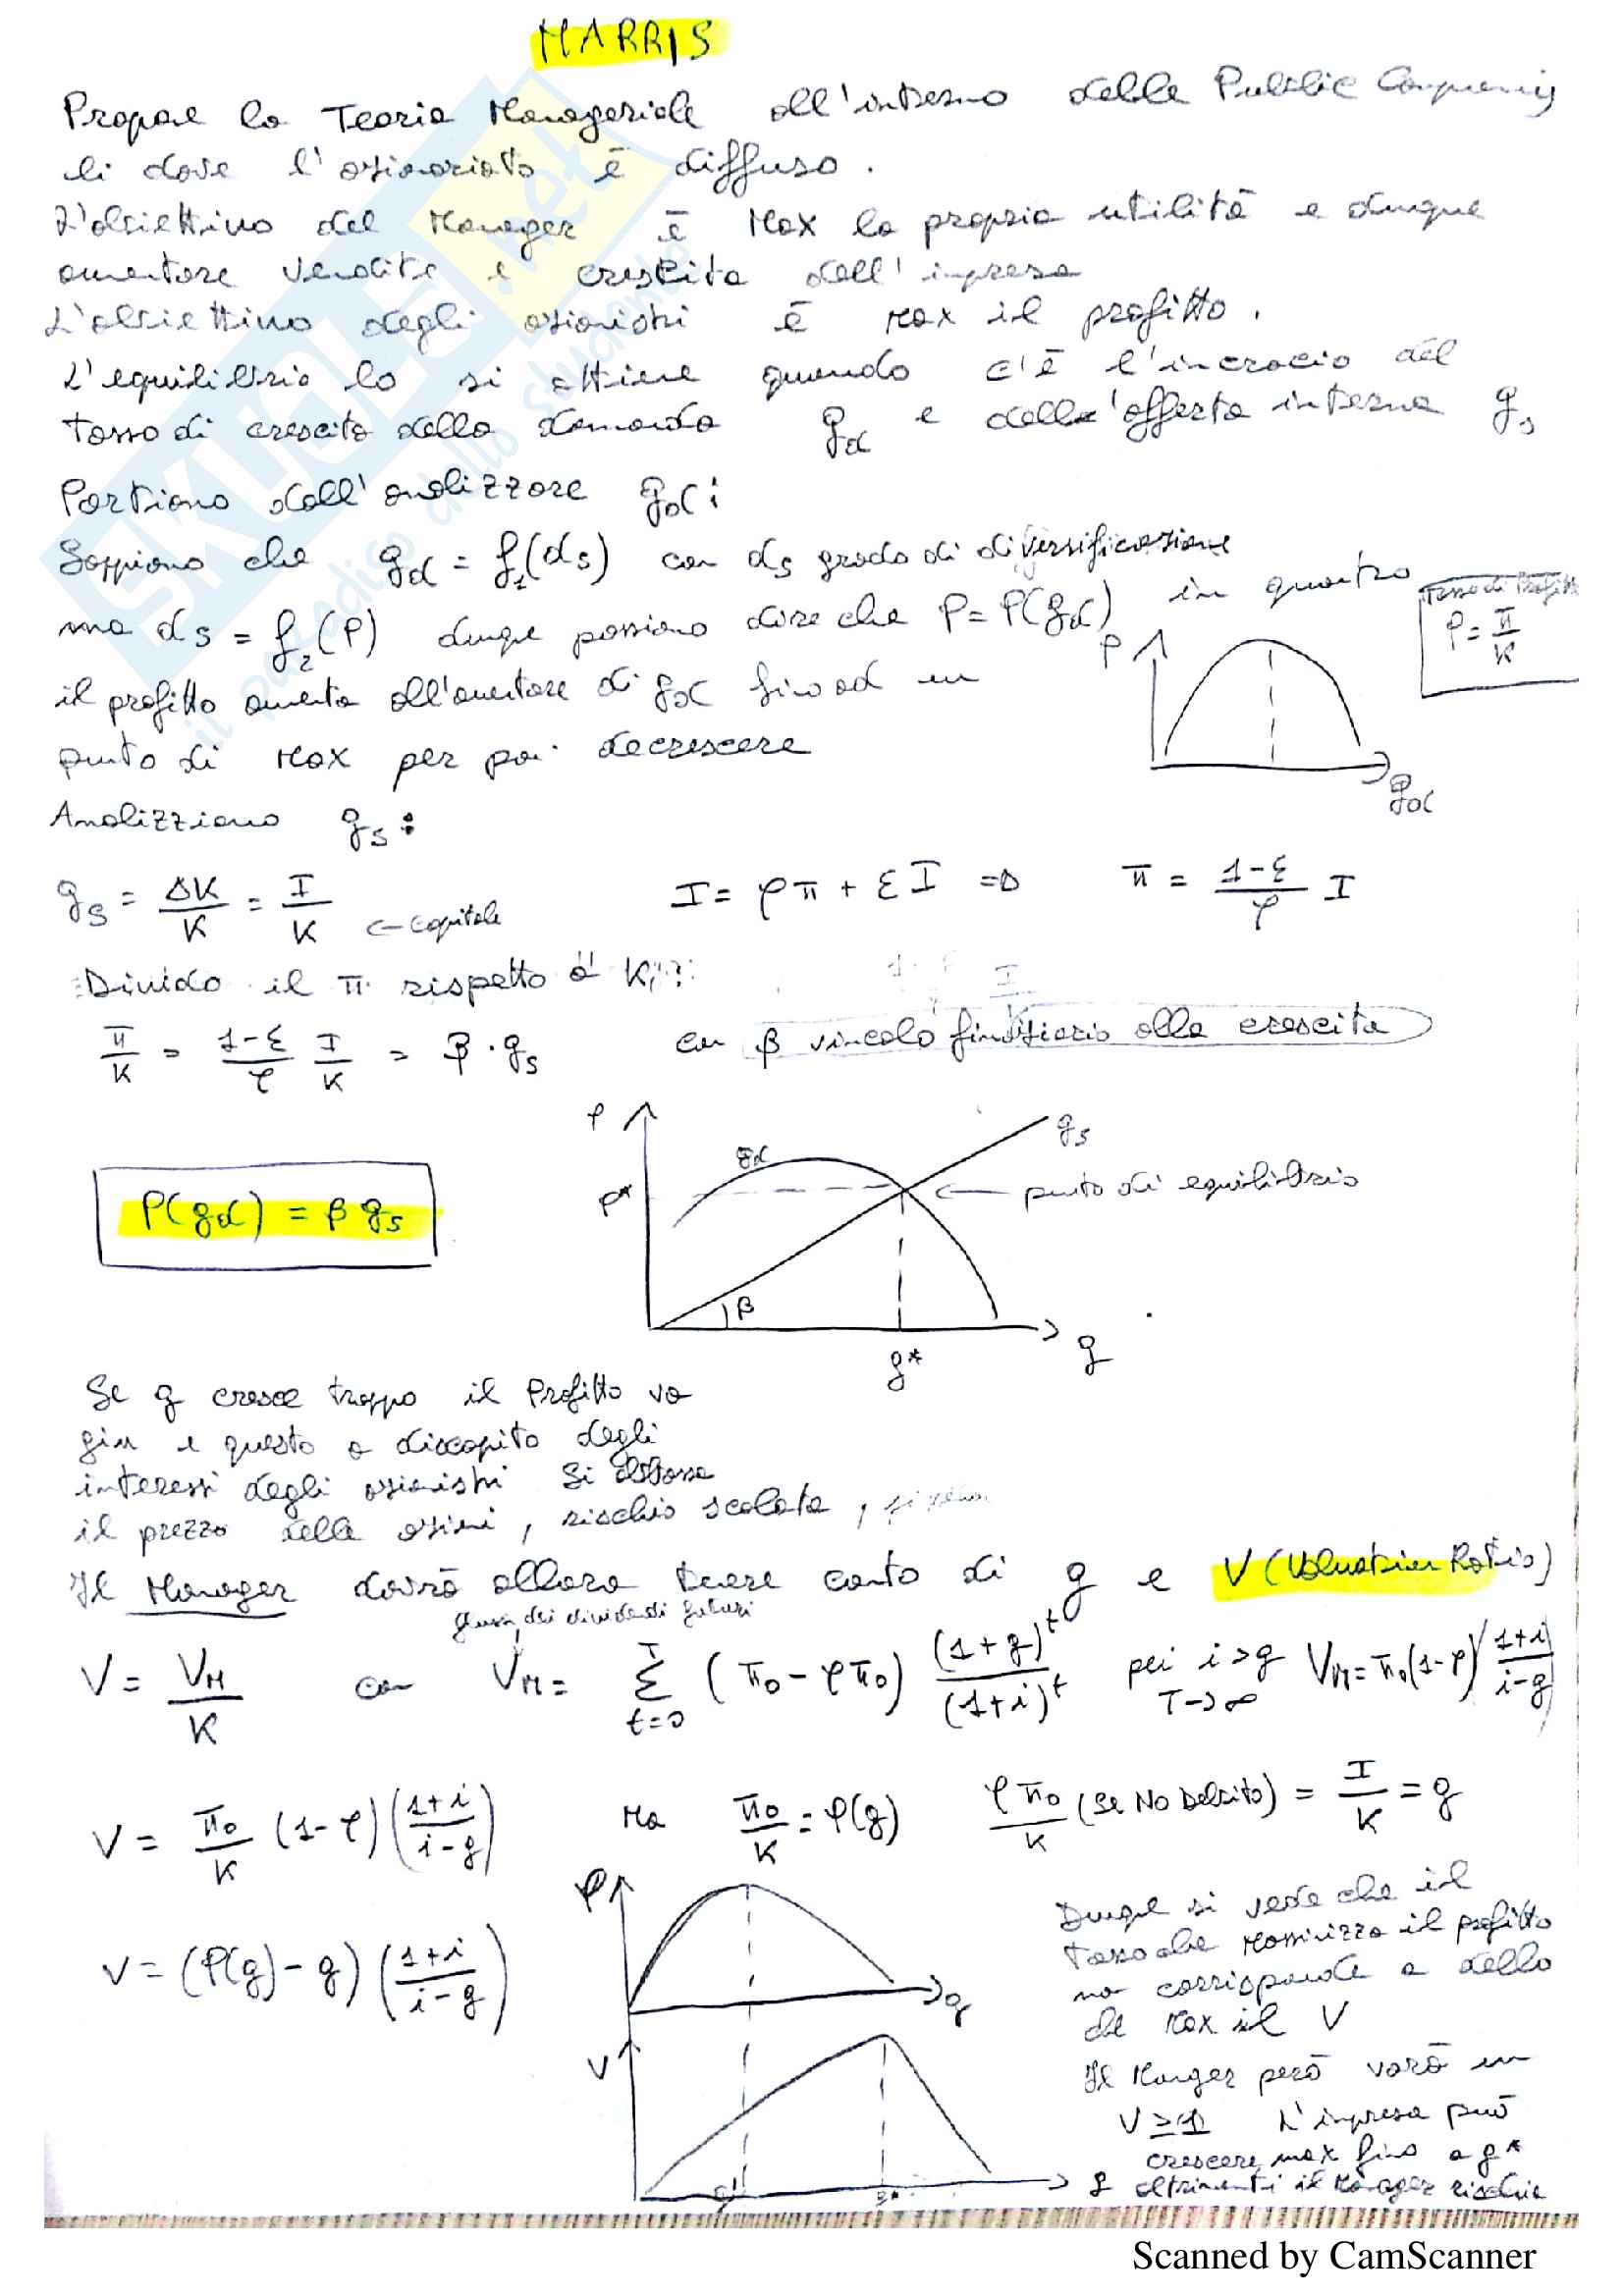 MARRIS
Propone la Teoria Manageriale all'interno delle Public Company
li dove l'azionariato è diffuso.
L'obiettivo del Manager è Max la propria utilità e dunque
aumentare vendite e crescita dell'impresa
L'obiettivo degli azionisti è Max il profitto.
L'equilibrio lo si ottiene quando c'è l'incrocio del
tasso di crescita della domanda gd e dell'offerta interna gs
Partiamo dall'analizzare gd:
Sappiamo che gd = f1(ds) con ds grado di diversificazione
ma ds = f2(P) dunque possiamo dire che P = P(gd) in quanto
Tasso di Profitto
P = π/K
il profitto aumenta all'aumentare di gd fino ad un
punto di Max per poi decrescere
P
gd
Analizziamo gs:
gs = ΔK/K = I/K ← capitale
I = φπ + εI => π = (1-ε)/φ I
Divido il π rispetto a K
π/K = (1-ε)/φ I/K = β · gs con β vincolo finanziario alla crescita
P
gd
gs
P*
← punto di equilibrio
β
g*
g
P(gd) = β gs
Se g cresce troppo il Profitto va
giu e questo a discapito degli
interessi degli azionisti si abbassa
il prezzo delle azioni, rischio scalata,
Il Manager dovrà allora tenere conto di g e V (Valuation Ratio)
flusso dei dividendi futuri
V = VM/K con VM = Σ t=0 T (π0 - φπ0) (1+g)^t/(1+i)^t per i>g T→∞ VM = π0(1-φ)((1+i)/(i-g))
V = π0/K (1-φ)((1+i)/(i-g)) Ma π0/K = P(g) φπ0/K (se No Debito) = I/K = g
V = (P(g) - g)((1+i)/(i-g))
P
g
V
g'
g*
g
Dunque si vede che il
tasso che Massimizza il profitto
non corrisponde a quello
che Max il V
Il Manager però vorrà un
V ≥ 1 L'impresa può
crescere max fino a g*
altrimenti il Manager rischia
SKUOLA.net
il paradiso dello studente
Scanned by CamScanner